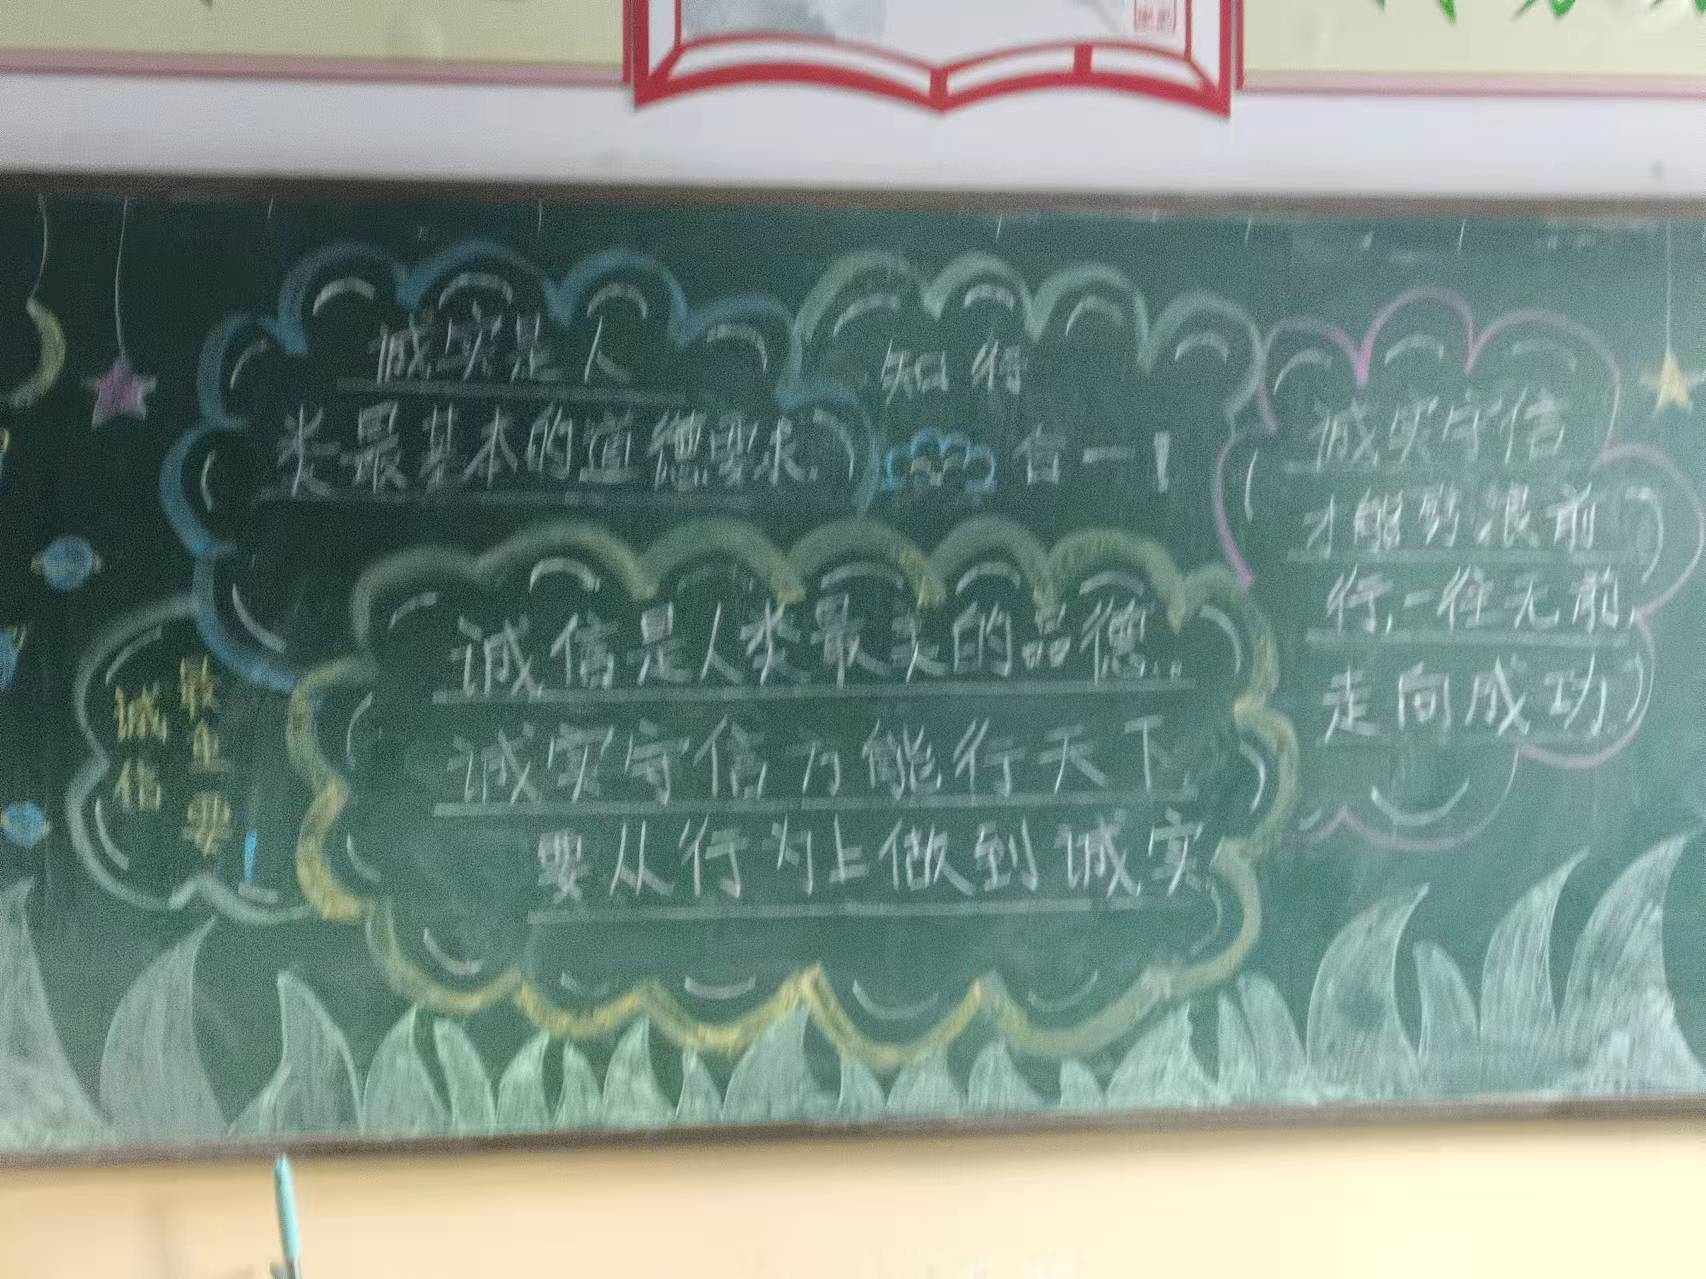 诚实是人
类最基本的道德要求.
知行
合一!
诚实守信
才能劈浪前
行,一往无前,
走向成功.
诚信是人类最美的品德...
诚实守信方能行天下.
要从行为上做到诚实.
诚信
最重要!